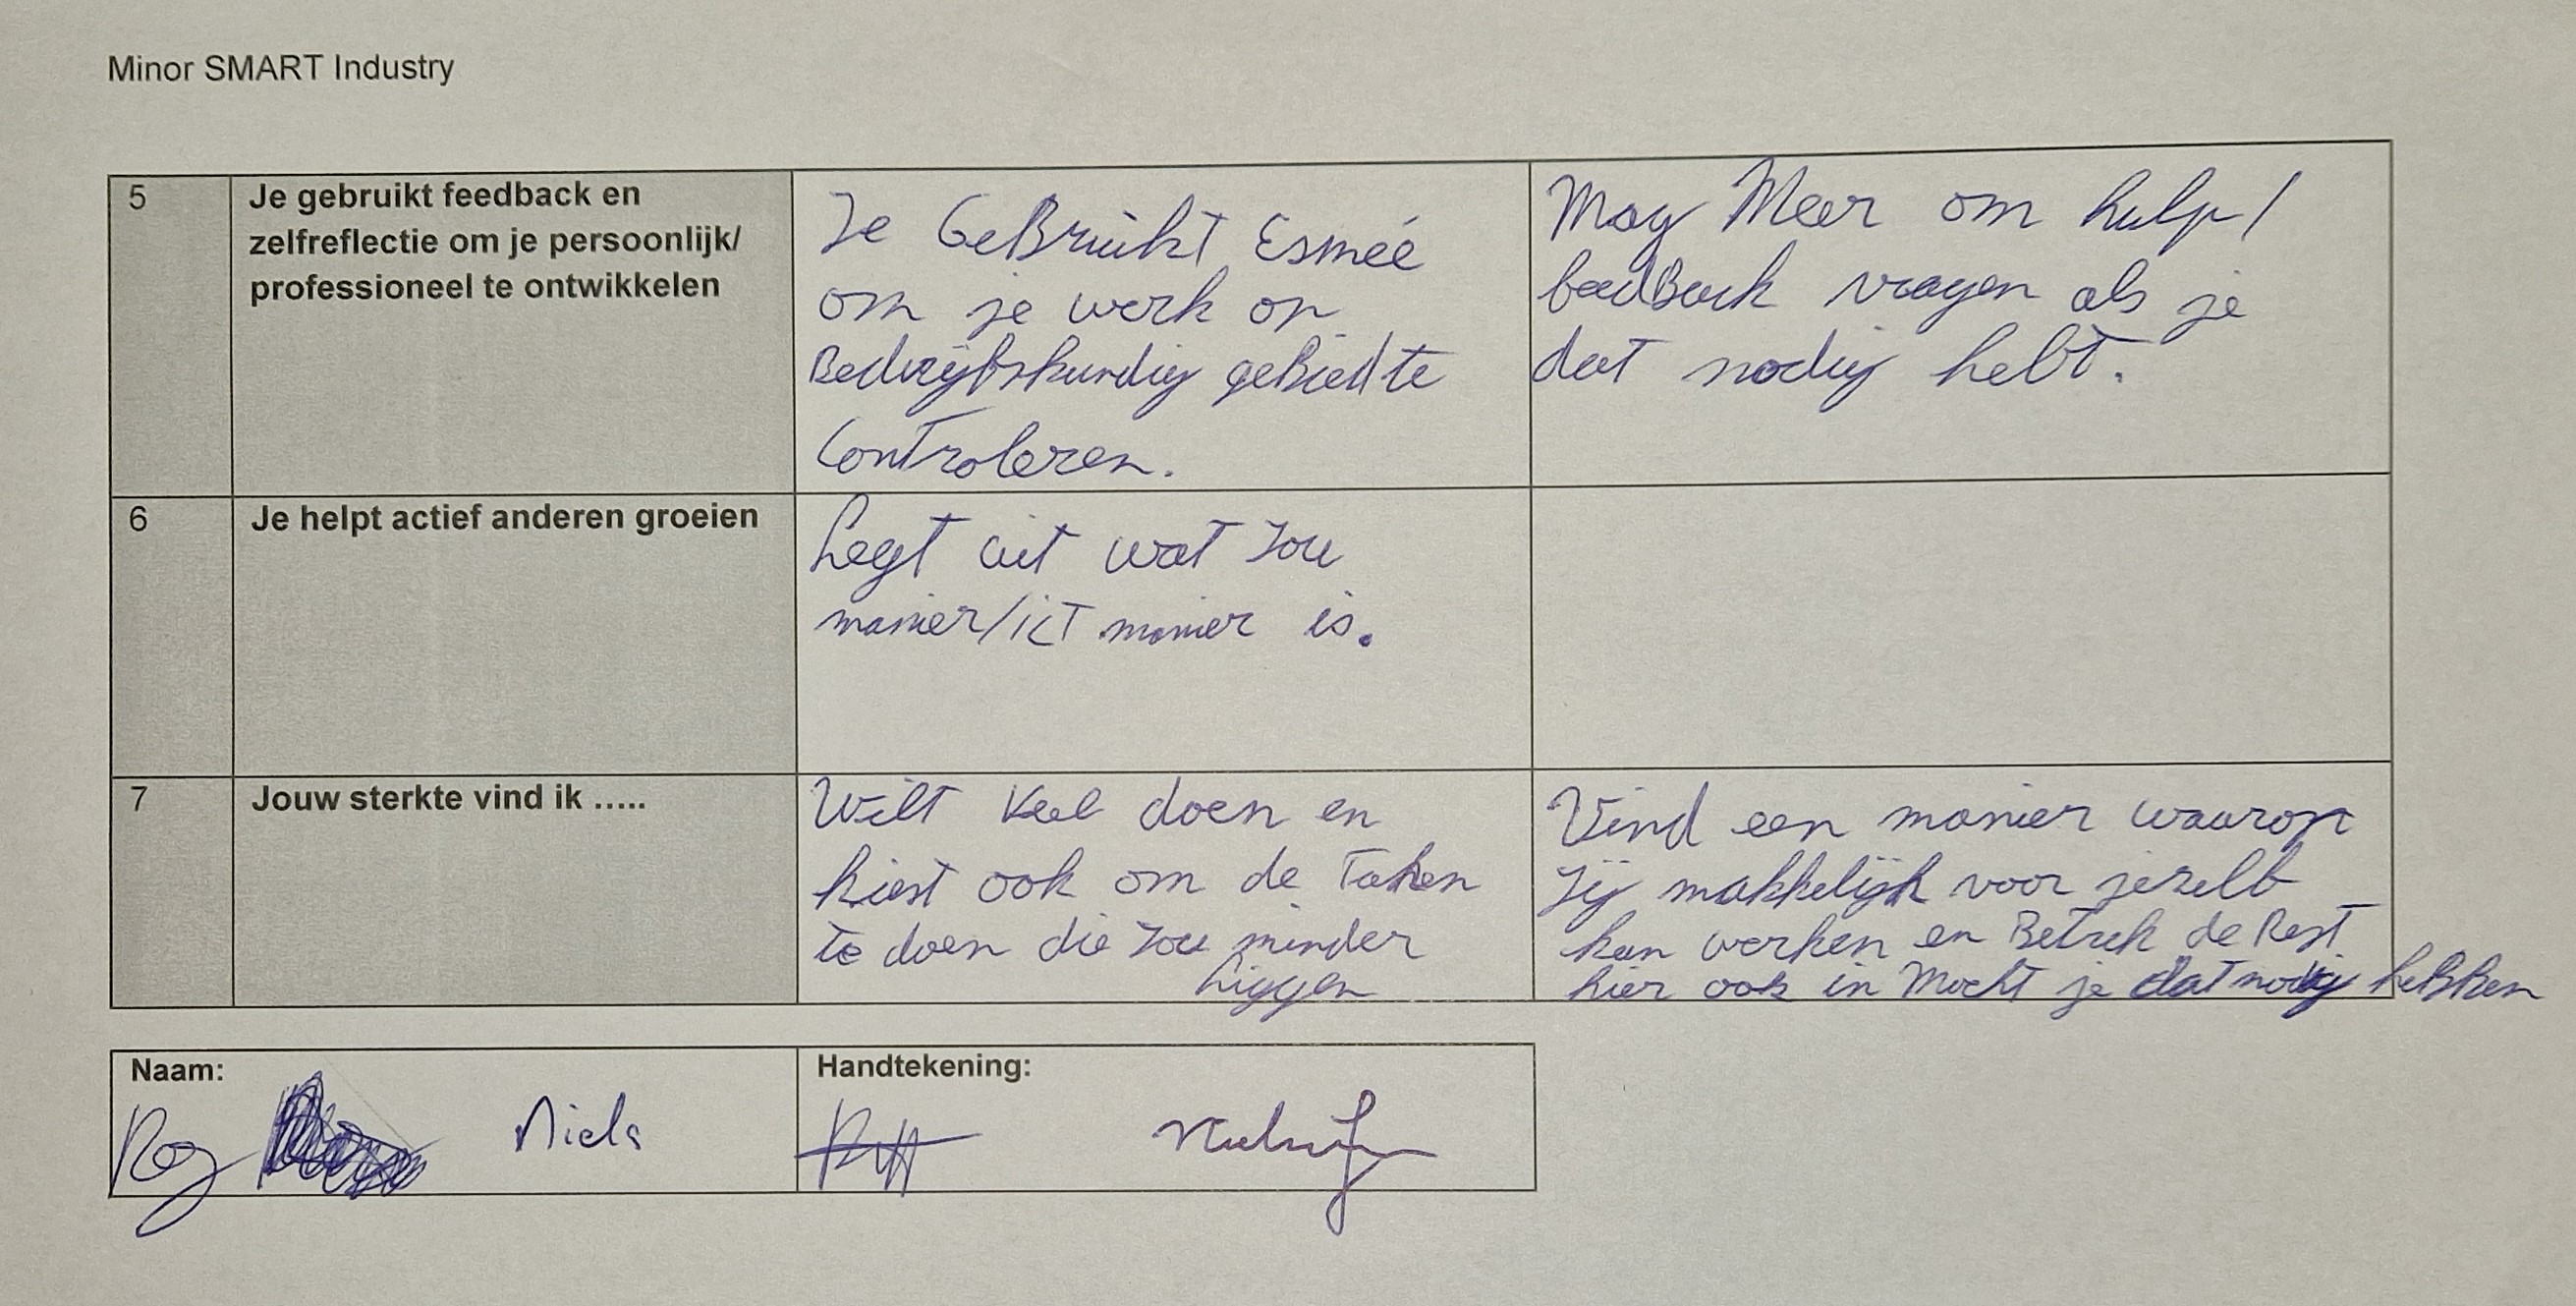 Minor SMART Industry
5
Je gebruikt feedback en
zelfreflectie om je persoonlijk/
professioneel te ontwikkelen
Je Gebruikt Esmeé
om je werk op
Bedrijfskundig gebied te
Controleren.
Mag Meer om hulp/
feedback vragen als je
dat nodig hebt.
6
Je helpt actief anderen groeien
Legt uit wat Jou
manier/ict manier is.
7
Jouw sterkte vind ik …..
Wilt veel doen en
kiest ook om de Taken
te doen die Jou minder
liggen
Vind een manier waarop
Jij makkelijk voor jezelf
kan werken en Betrek de Rest
hier ook in Mocht je dat nodig hebben
Naam:
Roy
Niels
Handtekening: